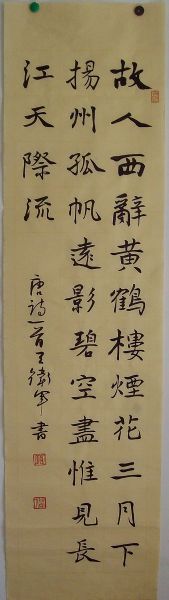 故人西辭黃鶴樓煙花三月下
揚州孤帆遠影碧空盡惟見長
江天際流
唐詩一首王衛軍書